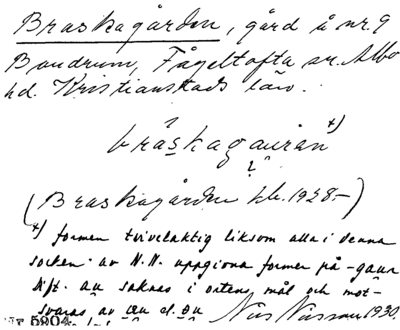 Braskagården, gård å nr. 9
Bondrum, Fågeltofta sn. Albo
hd. Kristianstads län.
bråskagauṙan x)
(Braskagården kb. 1928.-)
x) formen tvivelaktig liksom alla i denna
socken av N.N. uppgivna former på -gaur
Dift. au saknas i ortens mål och mot-
svaras av œu el. ɵu Nils Nilsson 1930.